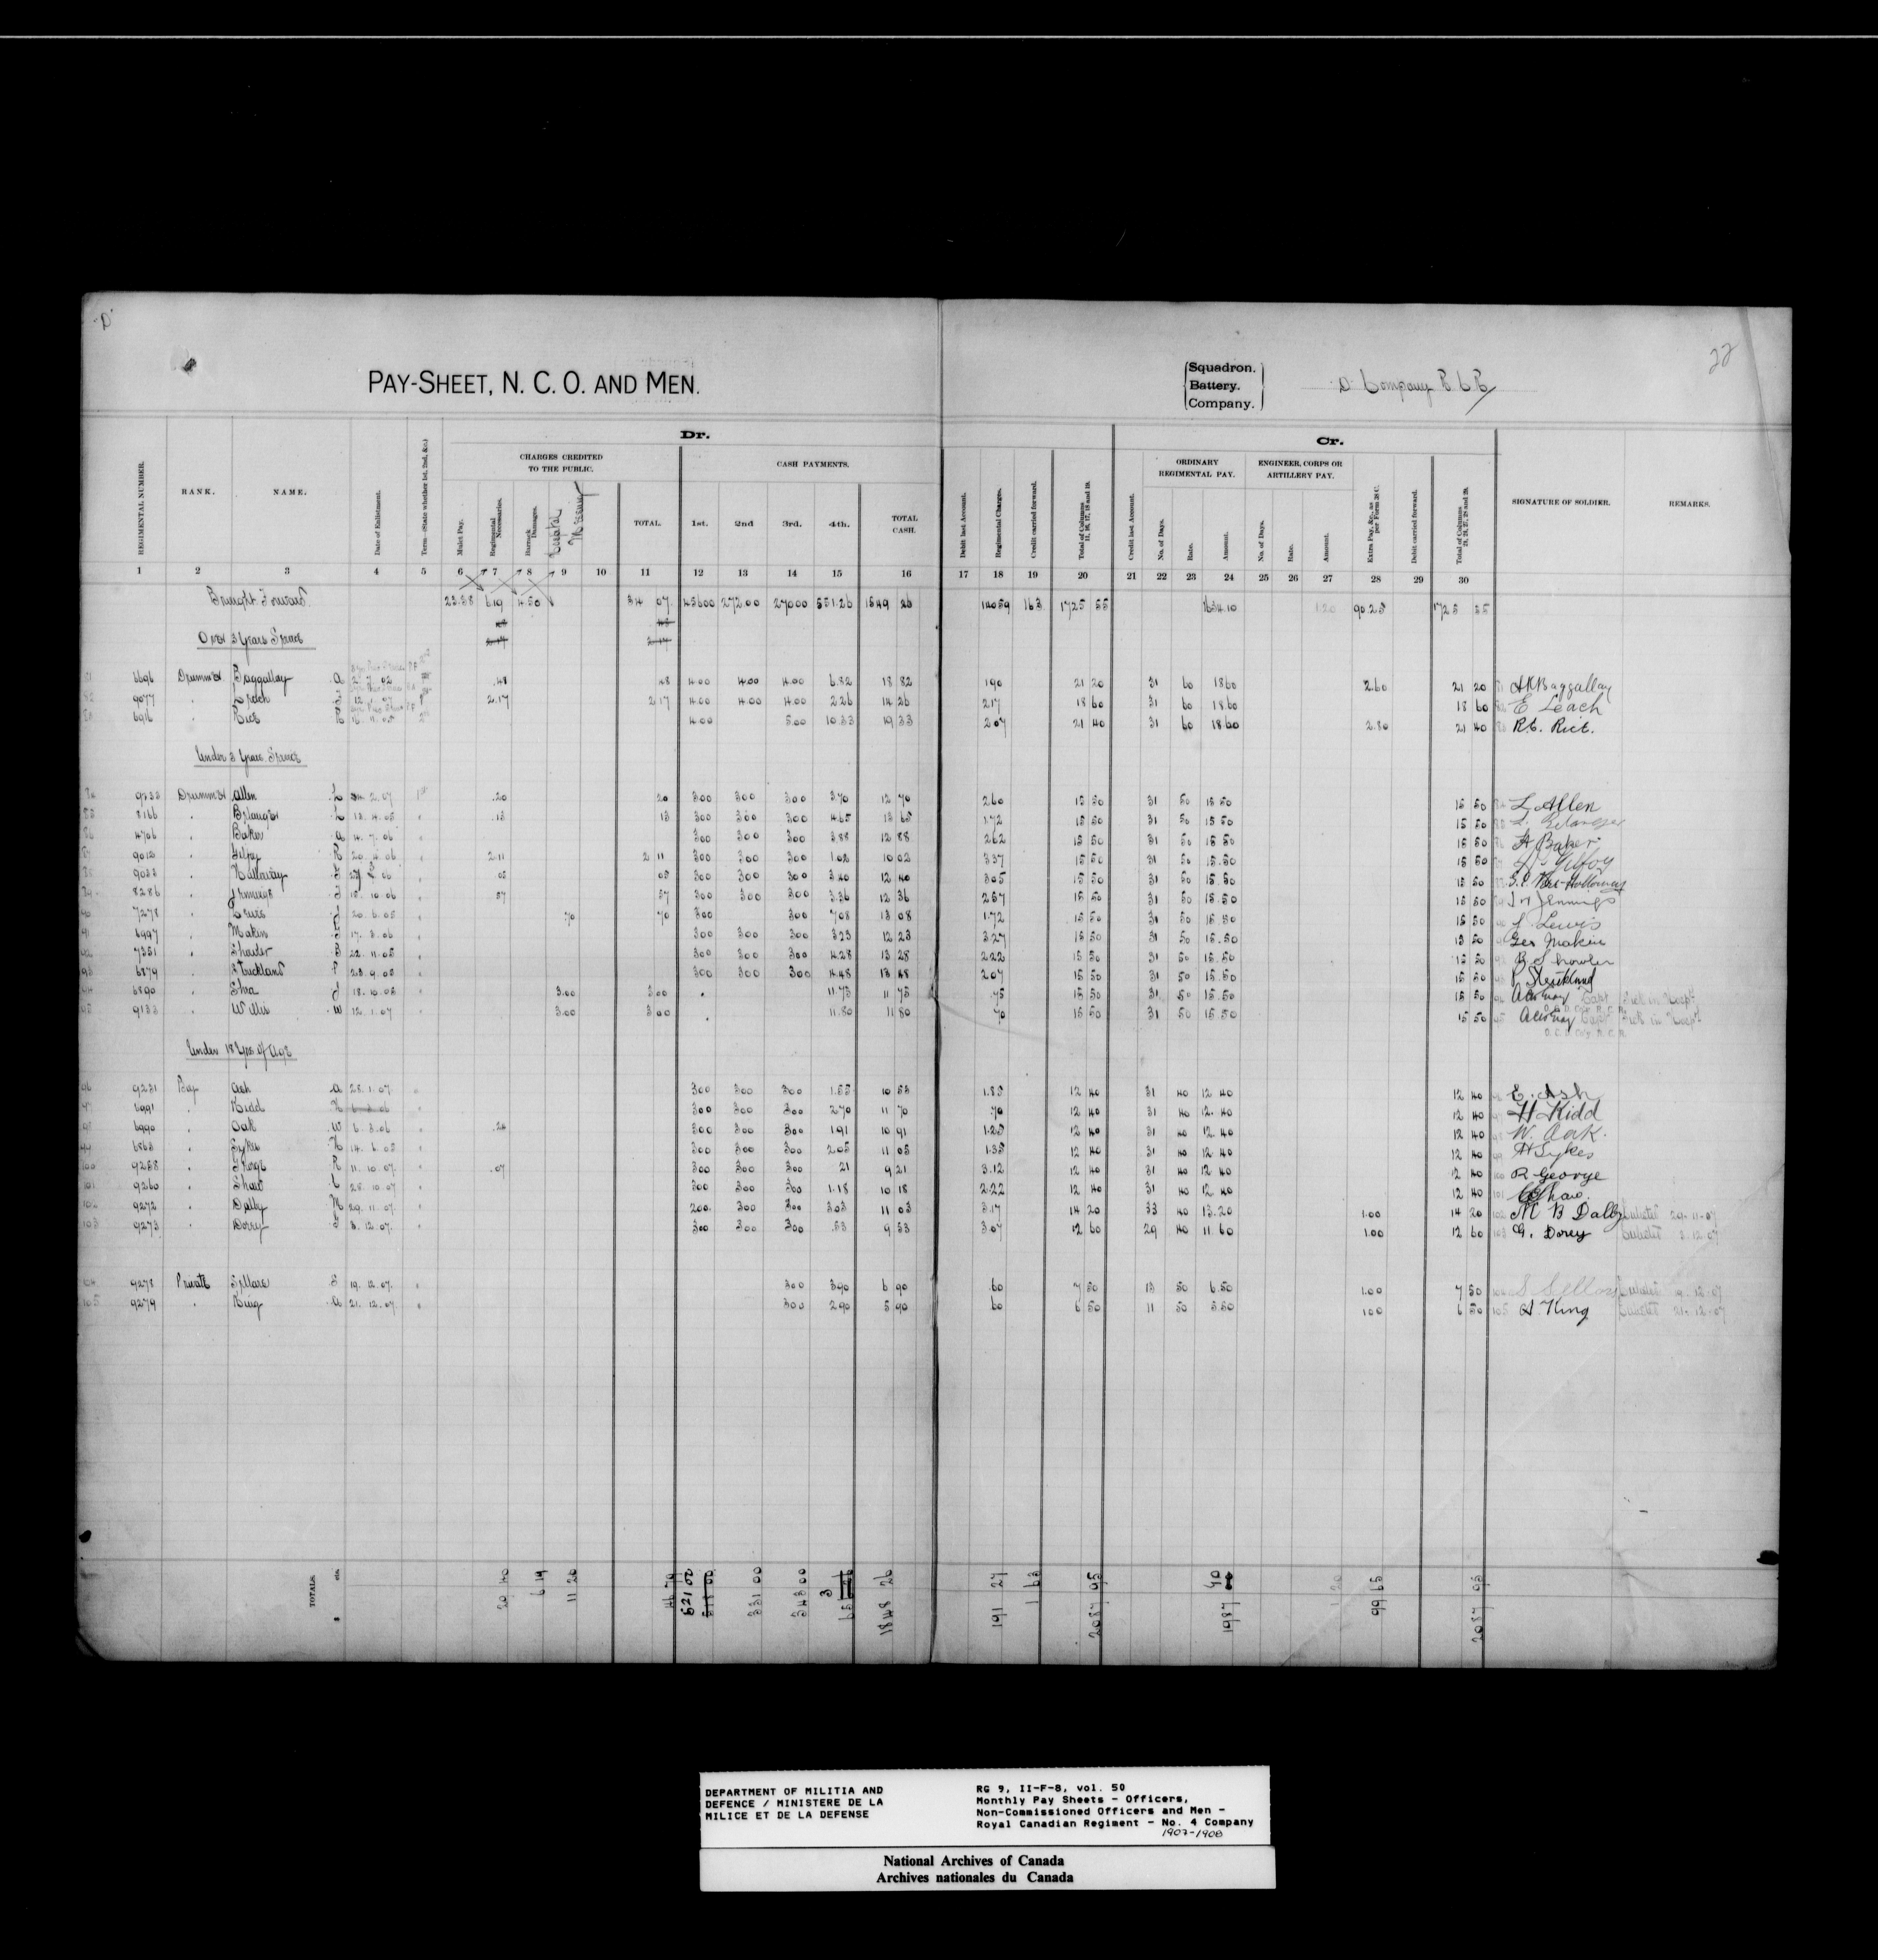 D
22
PAY-SHEET, N. C. O. AND MEN.
Squadron.
Battery.
Company.
D Company R.C.R.
Dr.
Cr.
CHARGES CREDITED TO THE PUBLIC.
CASH PAYMENTS.
ORDINARY REGIMENTAL PAY.
ENGINEER, CORPS OR ARTILLERY PAY.
REGIMENTAL NUMBER. RANK. NAME. Date of Enlistment. Term—(State whether 1st, 2nd, &c.) Mulct Pay. Regimental Necessaries. Barrack Damages. Hospital Messing TOTAL. 1st. 2nd 3rd. 4th. TOTAL CASH. Debit last Account. Regimental Charges. Credit carried forward. Total of Columns 11, 16, 17, 18 and 19. Credit last Account. No. of Days. Rate. Amount. No. of Days. Rate. Amount. Extra Pay, &c., as per Form 28 C. Debit carried forward. Total of Columns 21, 24, 27, 28 and 29. SIGNATURE OF SOLDIER. REMARKS.
1 2 3 4 5 6 7 8 9 10 11 12 13 14 15 16 17 18 19 20 21 22 23 24 25 26 27 28 29 30
Brought Forward 23.38 6.19 4.50 34 07 456.00 272.00 270.00 551.26 1549 26 140 59 1 63 1725 55 1634.10 1.20 90.25 1725 55
Over 3 Years Service
6696 Drummer Baggallay A .48 48 4.00 4.00 4.00 6.82 18 82 1 90 21 20 31 60 18 60 2.60 21 20 A R Baggallay
9077 " Leach E 2.17 2 17 4.00 4.00 4.00 2.26 14 26 2 17 18 60 31 60 18.60 18 60 E Leach
6916 " Rice R 4.00 5.00 10.33 19 33 2 07 21 40 31 60 18.60 2.80 21 40 R.C. Rice.
Under 3 Years Service
9233 Drummer Allen L 2.07 1st .20 20 3.00 3.00 3.00 3.70 12 70 2.60 15 50 31 50 15 50 15 50 L Allen
8166 " Belanger L 13.4.05 " .13 13 3.00 3.00 3.00 4.65 13 65 1.72 15 50 31 50 15 50 15 50 L. Belanger
4706 " Baker A 4.7.06 " 3.00 3.00 3.00 3.88 12 88 2.62 15 50 31 50 15 50 15 50 A Baker
9012 " Gilfoy R 20.4.06 " 2.11 2 11 3.00 3.00 3.00 1.02 10 02 3.37 15 50 31 50 15.50 15 50 Gilfoy
9033 " Holloway .05 05 3.00 3.00 3.00 3.40 12 40 3.05 15 50 31 50 15.50 15 50
8286 " Jennings J 15.10.06 " .57 57 3.00 3.00 3.00 3.36 12 36 2.57 15 50 31 50 15.50 15 50 J H Jennings
7278 " Lewis J 20.6.05 " 70 70 3.00 3.00 7.08 13 08 1.72 15 50 31 50 15 50 15 50 J. Lewis
6997 " Makin G 17.3.06 " 3.00 3.00 3.00 3.23 12 23 3.27 15 50 31 50 15.50 15 50 Geo Makin
7351 " Showler B 22.11.05 " 3.00 3.00 3.00 4.28 13 28 2.22 15 50 31 50 15.50 15 50 B. Showler
6879 " Strickland P 23.9.05 " 3.00 3.00 3.00 4.48 13 48 2.07 15 50 31 50 15.50 15 50 P Strickland
6890 " Shea J 18.10.05 " 3.00 3 00 11.75 11 75 .75 15 50 31 50 15.50 15 50
9133 " Willis W 12.1.07 " 3.00 3 00 11.80 11 80 .70 15 50 31 50 15 50 15 50
Under 18 Yrs. of Age
9231 Boy Ash A 28.1.07 " 3.00 3.00 3.00 1.55 10 55 1.85 12 40 31 40 12 40 12 40 E. Ash
6991 " Kidd H 6.3.06 " 3.00 3.00 3.00 2.70 11 70 .70 12 40 31 40 12.40 12 40 H Kidd
6990 " Oak W 6.3.06 " .24 3.00 3.00 3.00 1.91 10 91 1.25 12 40 31 40 12.40 12 40 W. Oak.
6863 " Sykes H 14.6.05 " 3.00 3.00 3.00 2.05 11 05 1.35 12 40 31 40 12.40 12 40 H Sykes
9258 " George R 11.10.07 " .07 3.00 3.00 3.00 21 9 21 3.12 12 40 31 40 12 40 12 40 R George
9260 " Shaw C 28.10.07 " 3.00 3.00 3.00 1.18 10 18 2.22 12 40 31 40 12.40 12 40 C Shaw.
9272 " Dalby M 29.11.07 " 2.00 3.00 3.00 3.03 11 03 3.17 14 20 33 40 13.20 1.00 14 20 M B Dalby Enlisted 29-11-07
9273 " Dorey G 3.12.07. " 3.00 3.00 3.00 .53 9 53 3.07 12 60 29 40 11 60 1.00 12 60 G. Dorey Enlisted 3.12.07
9278 Private Sellars S 19.12.07. " 3.00 3.90 6 90 .60 7 50 13 50 6.50 1.00 7 50 S Sellars Enlisted 19.12.07
9279 " King A 21.12.07. " 3.00 2.90 5 90 60 6 50 11 50 5.50 1.00 6 50 A. King Enlisted 21.12.07
TOTALS. $ cts. 20 40 6 19 11 20 46 79 621 00 531 00 543 00 1848 26 191 27 1 63 2087 95 1987 40 1 20 99 65 2087 95
DEPARTMENT OF MILITIA AND
DEFENCE / MINISTERE DE LA
MILICE ET DE LA DEFENSE
RG 9, II-F-8, vol. 50
Monthly Pay Sheets - Officers,
Non-Commissioned Officers and Men -
Royal Canadian Regiment - No. 4 Company
1907-1908
National Archives of Canada
Archives nationales du Canada